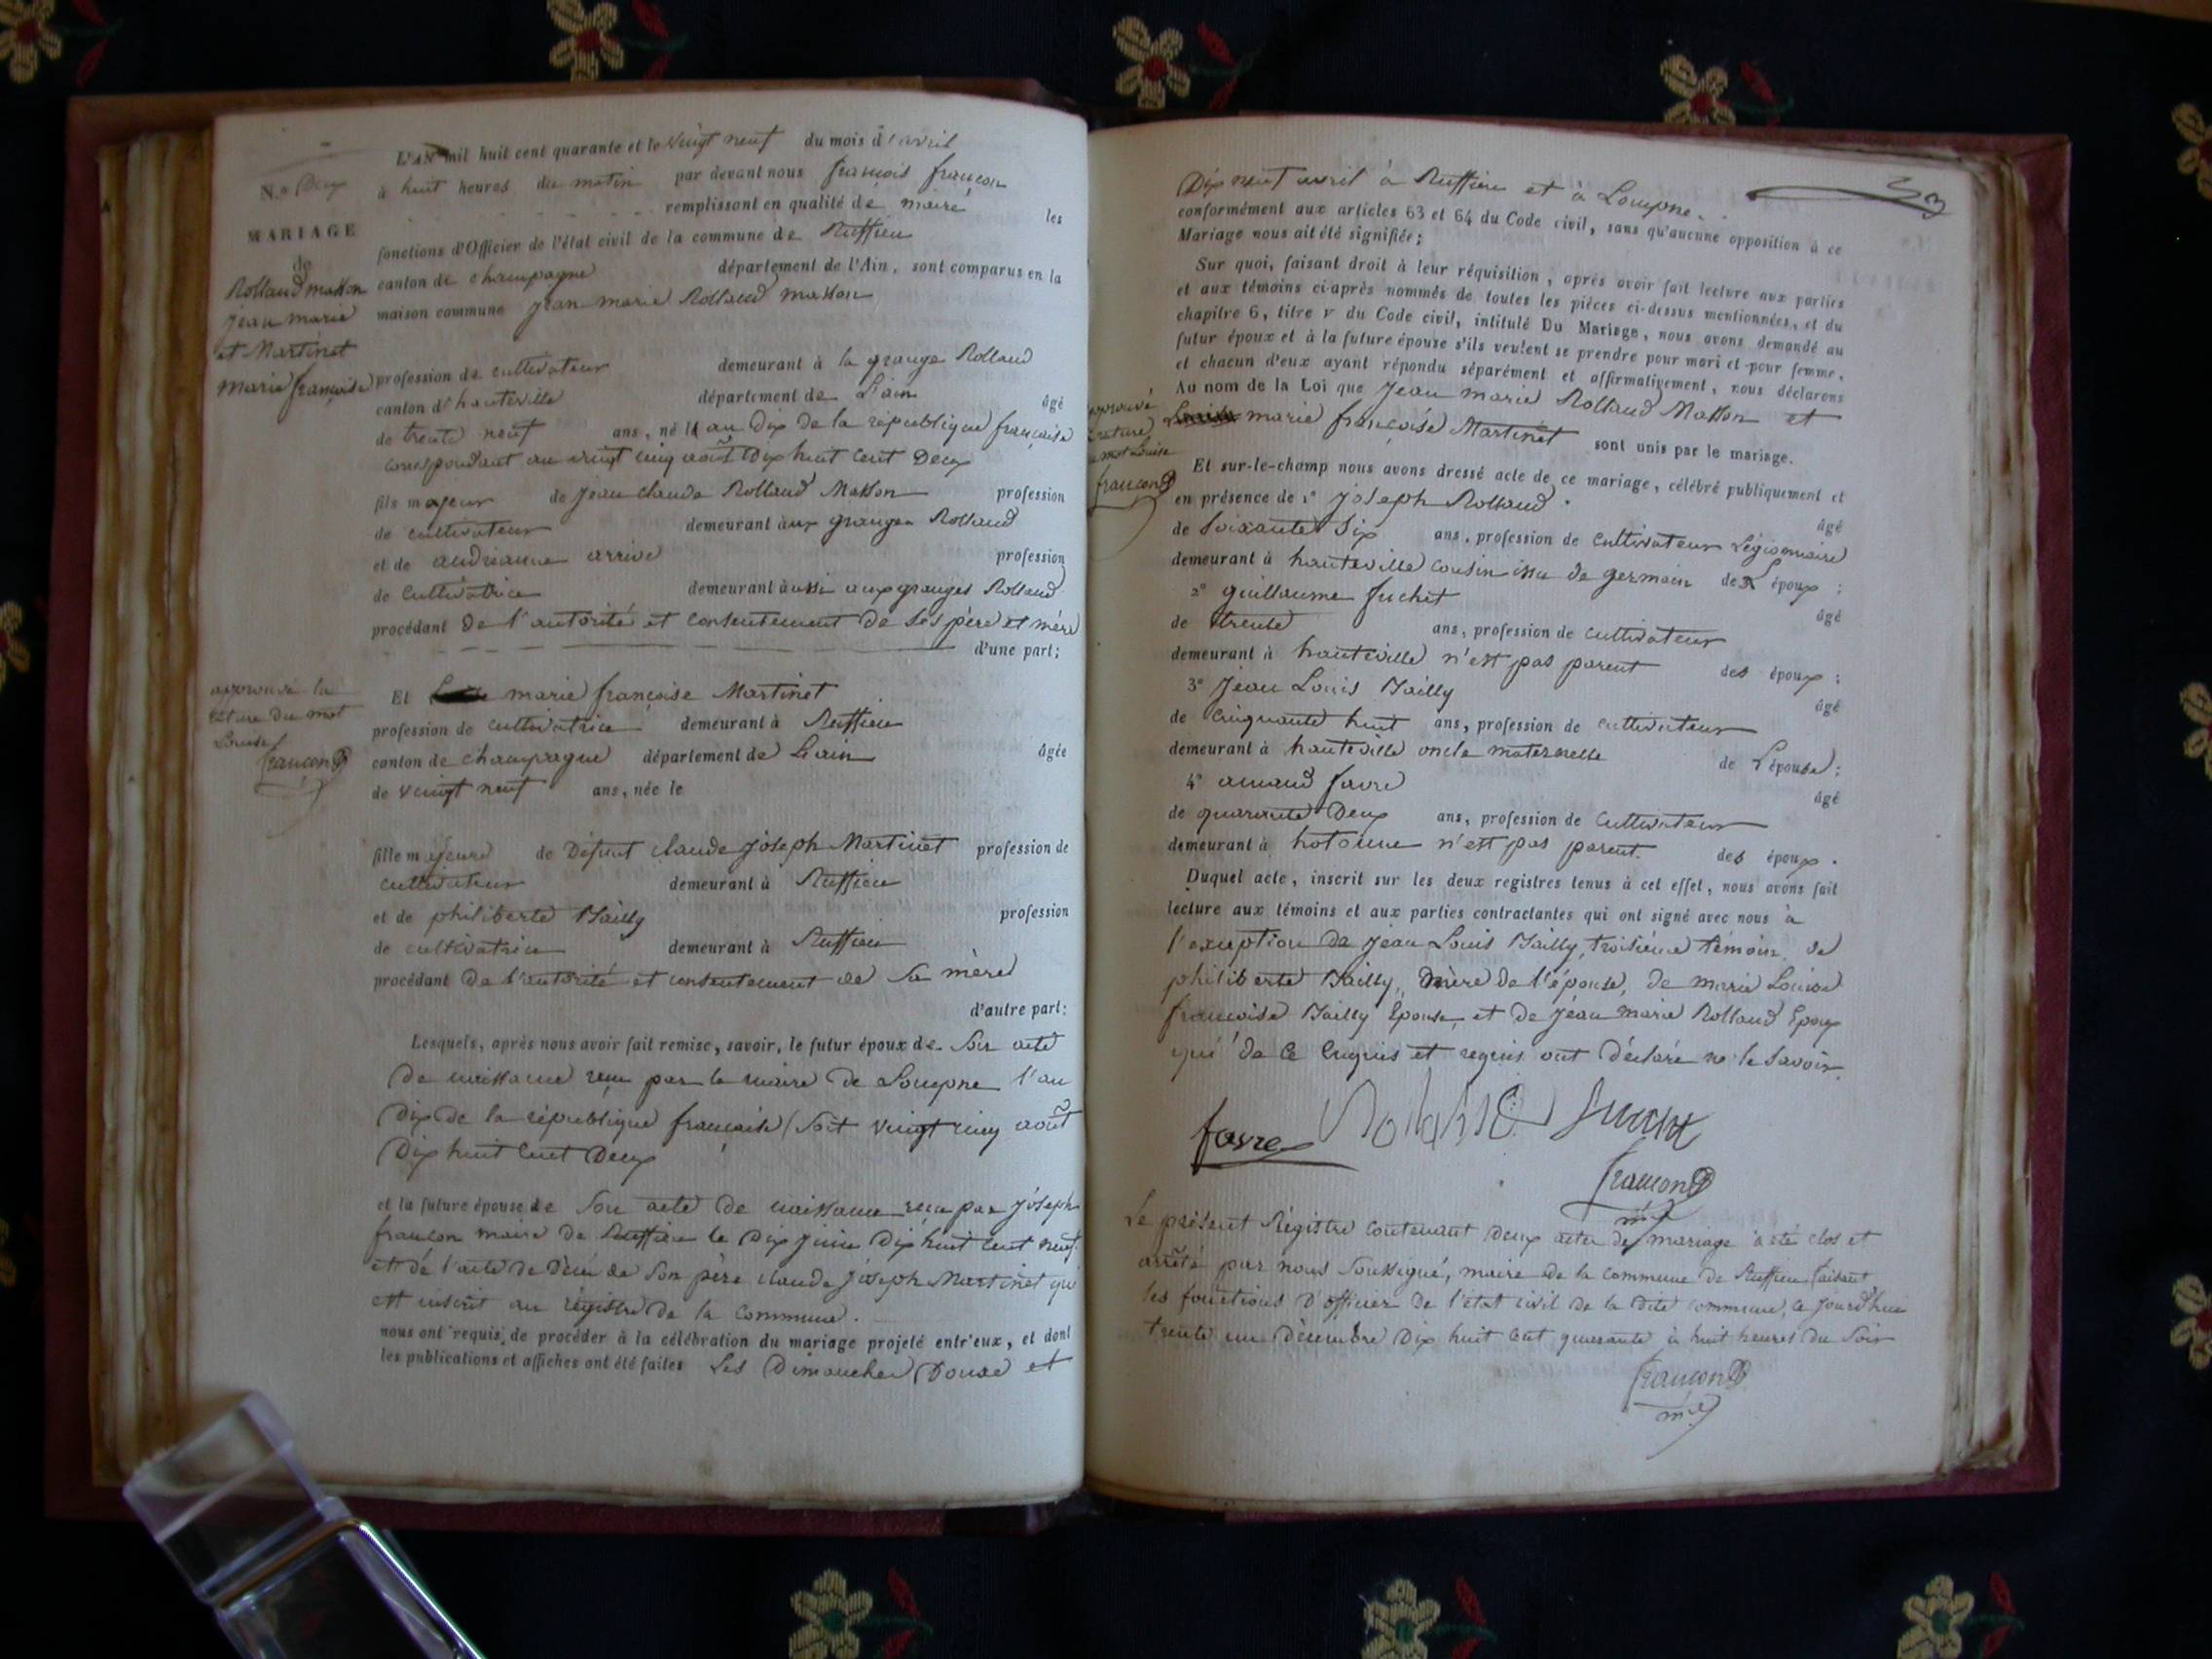 L'AN mil huit cent quarante et le vingt neuf du mois d'avril
à huit heures du matin par devant nous françois françon
remplissant en qualité de maire les
fonctions d'Officier de l'état civil de la commune de Ruffieu
canton de champagne département de l'Ain, sont comparus en la
maison commune jean marie Rolland masson
profession de cultivateur demeurant à la grange Rolland
canton d'hauteville département de L'ain âgé
de trente neuf ans, né l'an dix de la république française
correspondant au vingt cinq août dix huit cent Deux
fils majeur de jean claude Rolland Masson profession
de cultivateur demeurant aux granges Rolland
et de andréanne arrive profession
de cultivatrice demeurant aussi aux granges Rolland
procédant de l'autorité et consentement de ses père et mère
d'une part;
Et marie françoise Martinet
profession de cultivatrice demeurant à Ruffieu
canton de champagne département de L'ain âgée
de vingt neuf ans, née le
fille majeure de Défunt claude joseph Martinet profession de
cultivateur demeurant à Ruffieu
et de philiberte Jailly profession
de cultivatrice demeurant à Ruffieu
procédant de l'autorité et consentement de sa mère
d'autre part:
Lesquels, après nous avoir fait remise, savoir, le futur époux de son acte
de naissance reçu par le maire de Lompne l'an
Dix de la république française soit vingt cinq août
Dix huit cent Deux
et la future épouse de son acte de naissance reçu par joseph
françon maire de Ruffieu le Dix juin Dix huit cent neuf
et de l'acte de décé de son père claude joseph Martinet qui
est inscrit au régistre de la commune.
nous ont requis de procéder à la célébration du mariage projeté entr'eux, et dont
les publications et affiches ont été faites Les Dimanches Douze et
N.o Deux
MARIAGE
de
Rolland masson
jean marie
et Martinet
marie françoise
approuvé la
rature du mot
Louise
françon
Dix neuf avril à Ruffieu et à Lompne.
conformément aux articles 63 et 64 du Code civil, sans qu'aucune opposition à ce
Mariage nous ait été signifiée;
Sur quoi, faisant droit à leur réquisition, après avoir fait lecture aux parties
et aux témoins ci-après nommés de toutes les pièces ci-dessus mentionnées, et du
chapitre 6, titre v du Code civil, intitulé Du Mariage, nous avons demandé au
futur époux et à la future épouse s'ils veulent se prendre pour mari et pour femme,
et chacun d'eux ayant répondu séparément et affirmativement, nous déclarons
Au nom de la Loi que jean marie Rolland Masson et
Louise marie françoise Martinet sont unis par le mariage.
Et sur-le-champ nous avons dressé acte de ce mariage, célébré publiquement et
en présence de 1° joseph Rolland
âgé
de soixante six ans, profession de cultivateur Légionnaire
demeurant à hauteville cousin issu de germain de L'époux;
2° guillaume fuchet
âgé
de trente ans, profession de cultivateur
demeurant à hauteville n'est pas parent des époux;
3° jean Louis Jailly
âgé
de cinquante huit ans, profession de cultivateur
demeurant à hauteville oncle maternelle de L'épouse;
4° amand favre
âgé
de quarante Deux ans, profession de cultivateur
demeurant à hotonne n'est pas parent des époux.
Duquel acte, inscrit sur les deux registres tenus à cet effet, nous avons fait
lecture aux témoins et aux parties contractantes qui ont signé avec nous à
l'exception de jean Louis Jailly, troisième témoin, de
philiberte Jailly, mère de l'épouse, de marie Louise
françoise Jailly Epouse, et de jean marie Rolland Epoux
qui de ce enquis et requis ont déclaré ne le savoir.
favre Rolland fuchet
françon
m.re
Le présent Régistre contenant deux actes de mariage a été clos et
arrêté par nous soussigné, maire de la commune de Ruffieu faisant
les fonctions d'officier de l'état civil de la dite commune, ce jourd'hui
trente un décembre Dix huit cent quarante à huit heures du soir
françon
m.re
approuvé
rature
mot Louise
françon